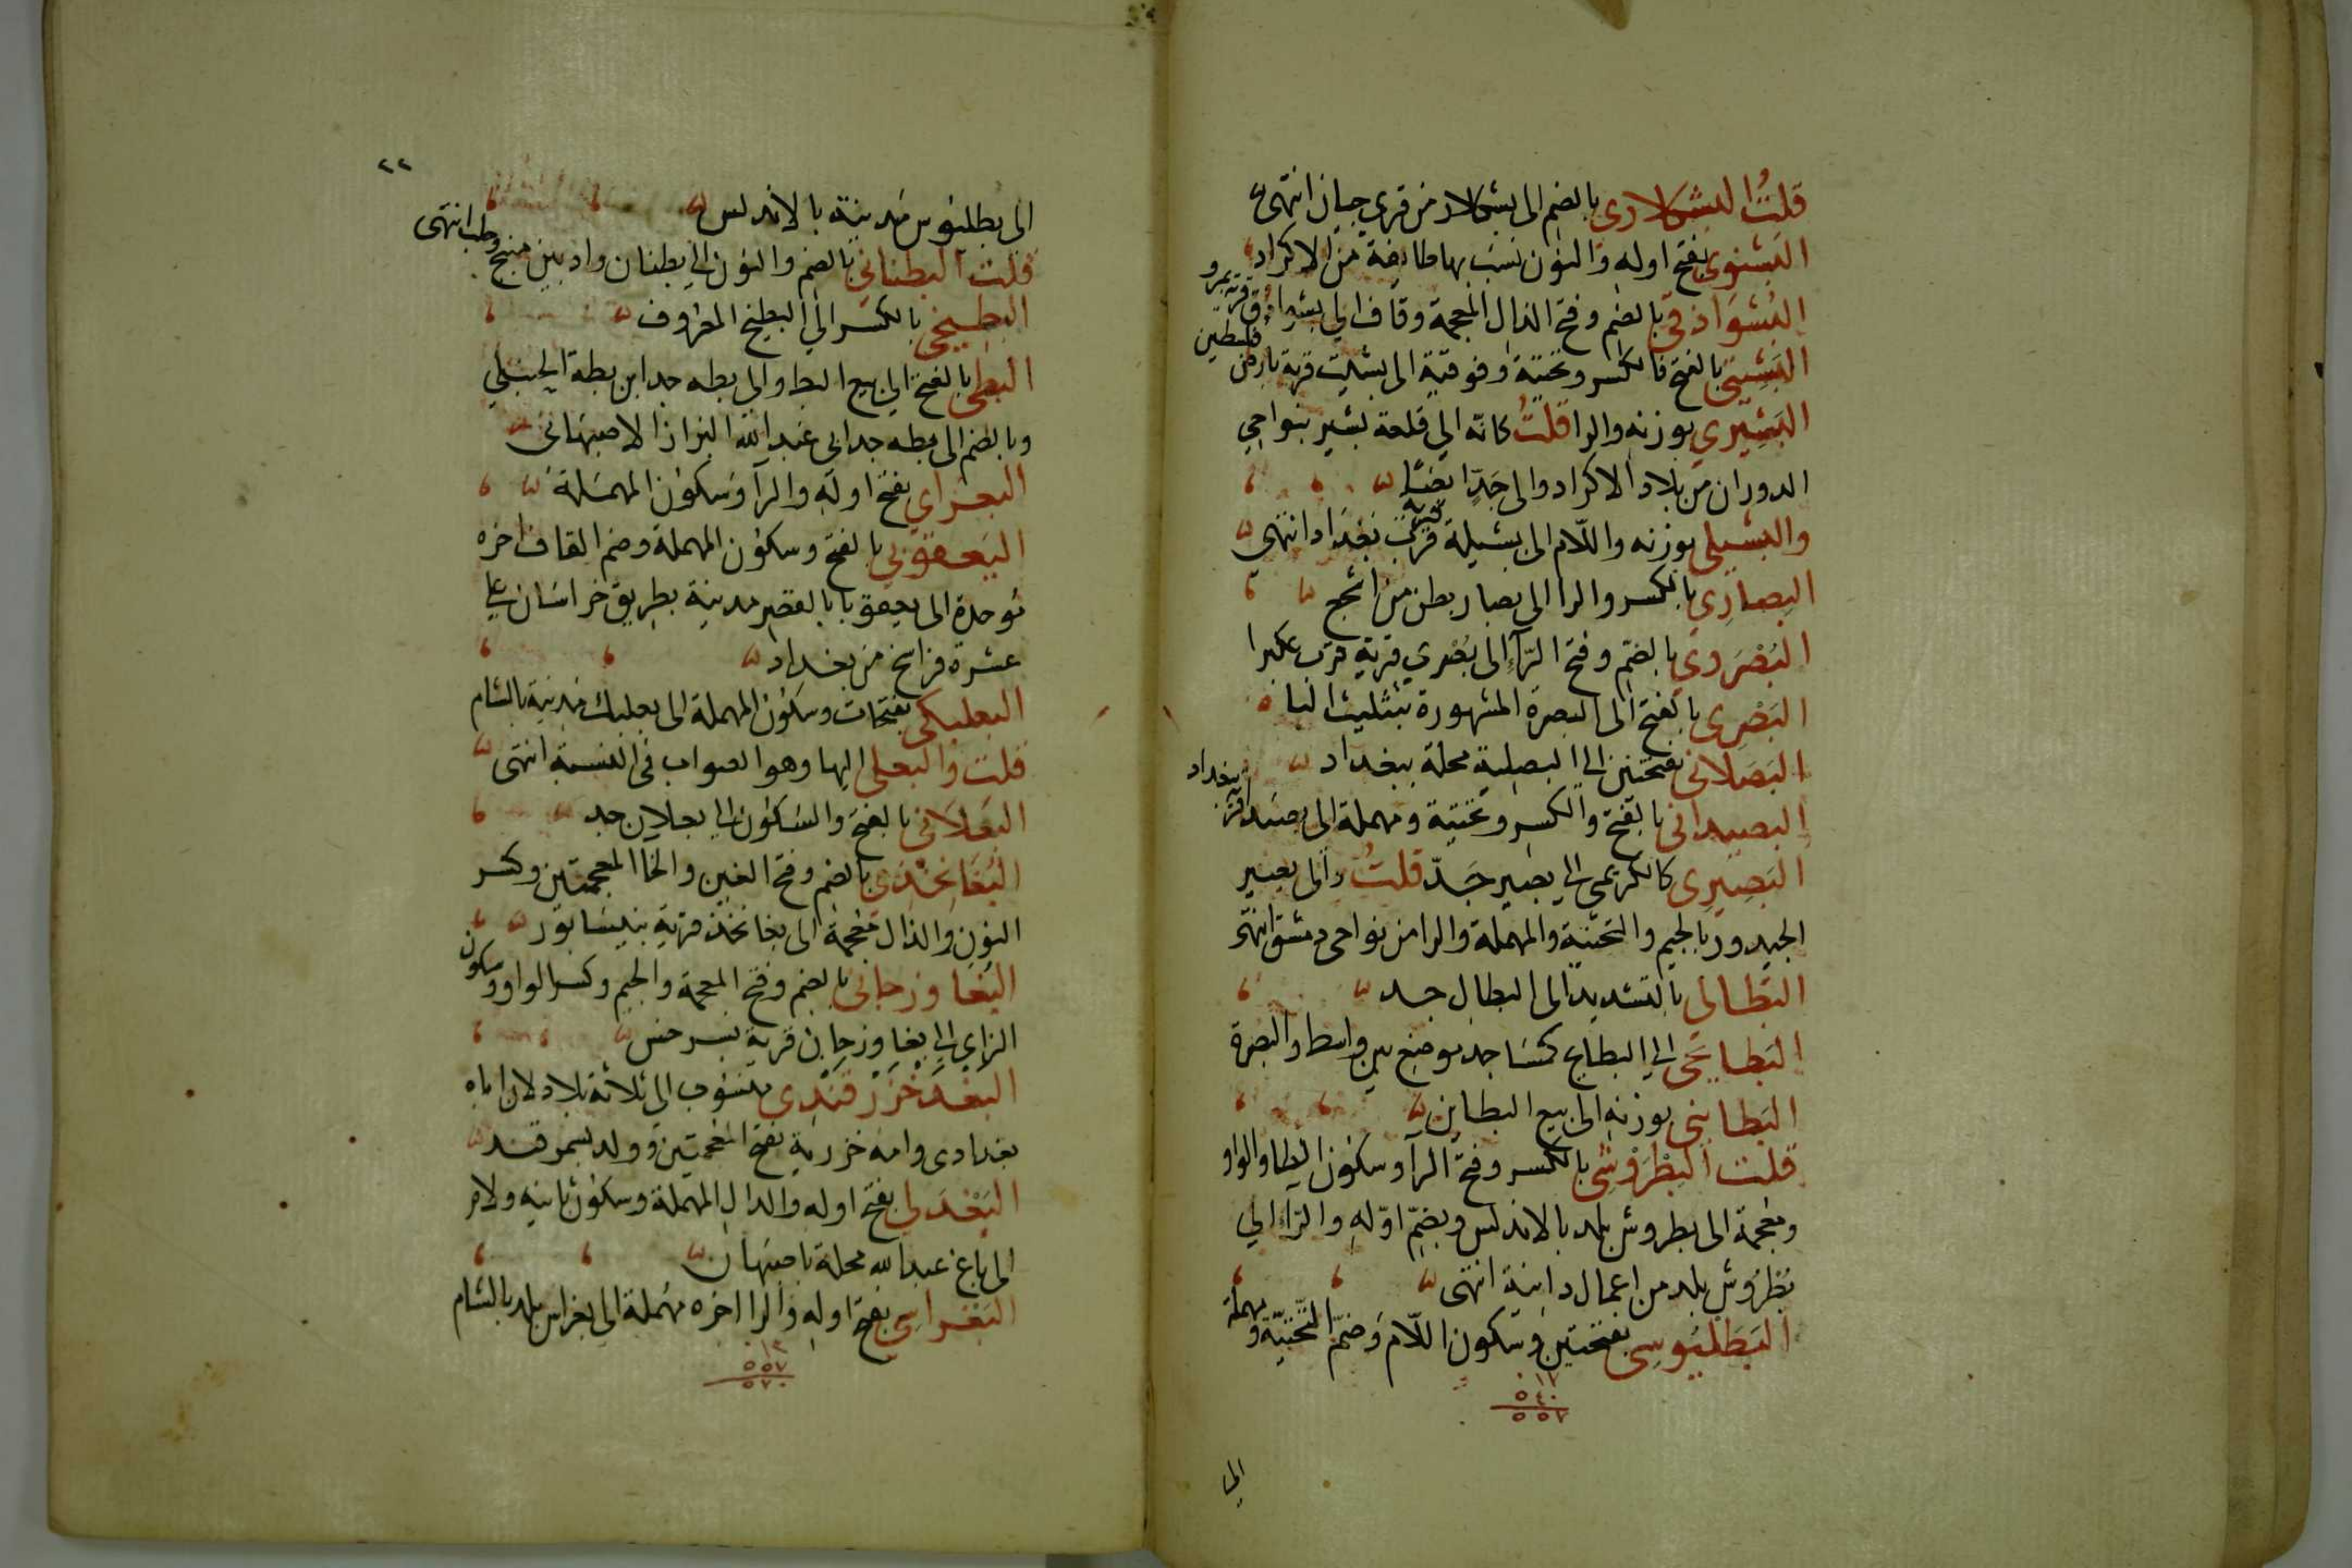 قلتُ البشكلاري بالضم الى بشكلار من قرى جيان انتهى
البَشنوي بفتح اوله والنون نسب بها طايفة من الاكراد
البُشوَاذقي بالضم وفتح الذال المعجمة وقاف الى بشواذق قرية بمرو
البَشِيتي بالفتح فالكسر وتحتية وفوقية الى بشيت قرية بارض فلسطين
البَشِيري بوزنه والرا قلتُ كانّه الى قلعة بشير بنواحي
الدوران من بلاد الاكراد والى جَدّ ايضًا
والبشيلي بوزنه واللّام الى بشيلة قرية قرب بغداد انتهى
البِصَارِي بالكسر والرا الى بصار بطن من اشجع
البُصْرَوي بالضم وفتح الرّاء الى بُصرى قرية قرب عكبرا
البَصْرِي بالفتح الى البصرة المشهورة بتثليث البا
البَصَلانى بفتحتين الى البصلية محلة ببغداد
البصيدانى بالفتح والكسر وتحتية ومهملة الى بصيدا قرية ببغداد
البَصِيرِى كالكريمى الى بصير جَدّ قلتُ والى بصير
الجيدور بالجيم والتحتية والمهملة والرا من نواحى دمشق انتهى
البَطالى بالتشديد الى البطال جد
البَطايحى الى البطايح كمساجد موضع بين واسط والبصرة
البَطاينى بوزنه الى بيع البطاين
قلت البِطْرَوْشِي بالكسر وفتح الرآ وسكون الطا والواو
ومعجمة الى بطروش بلد بالاندلس وبضمّ اوّله والرّاء الى
بُطْرُوش بلد من اعمال دانية انتهى
البَطَلْيُوسِى بفتحتين وسكون اللّام وضمّ التّحتيّة ومهملة
١٧
٥٤٠
٥٥٧
الى
٢٢
الى بطليوس مَدينة بالاندلس
قلت البُطناني بالضم والنون الى بطنان واد بين منبج وحلب انتهى
البطِّيخي بالكسر الى البطيخ المعروف
البطى بالفتح الى بيع البط والى بطه جد ابن بطة الحنبلي
وبالضم الى بطه جد ابى عبد الله البزاز الاصبهانى
البعرَاي بفتح اوله والرآ وسكون المهمَلة
البَعقوبي بالفتح وسكون المهملة وضم القاف اخره
موحدة الى بعقوبا بالقصر مدينة بطريق خراسان على
عشرة فراسخ من بغداد
البعلبكى بفتحات وسكون المهملة الى بعلبك مدينة بالشام
قلت والبعلى اليها وهو الصواب فى النسبة انتهى
البَعلانى بالفتح والسكون الى بعلان جد
البُغَانخذي بالضم وفتح الغين والخا المعجمتين وكسر
النون والذال معجمة الى بغانخذ قرية بنيسابور
البُغاوزجانى بالضم وفتح المعجمة والجيم وكسر الواو وسكون
الزاي الى بغاوزجان قرية بسرخس
البَغْدَخَزَرْقَنْدِى منسوب الى ثلاثة بلاد لان اباه
بغدادى وامه خزرية بفتح المعجمتين وولد بسمرقند
البَغْدَلى بفتح اوله والدال المهملة وسكون ثانيه ولام
الى باغ عبد الله محلة باصبهان
البَغراسى بفتح اوله والرا اخره مهملة الى بغراس بلد بالشام
١٣
٥٥٧
٥٧٠